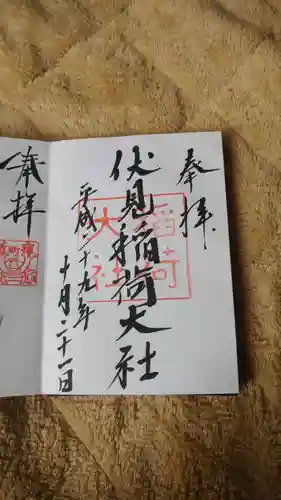 奉拝
伏見稲荷大社
平成二十九年
十月二十一日
稲荷
大社
奉拝